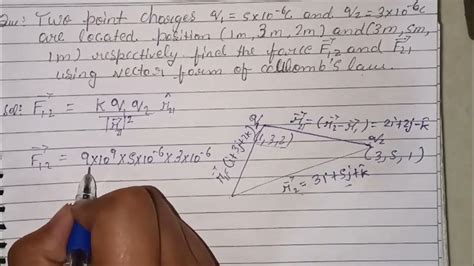 Que: Two point charges q₁ = 5x10⁻⁶C and q₂ = 3x10⁻⁶C
are located position (1m, 3m, 2m) and (3m, 5m,
1m) respectively find the force F⃗₁₂ and F⃗₂₁
using vector form of coulomb's law.
Sol: F⃗₁₂ = k q₁ q₂ / |r⃗|²
F⃗₁₂ = 9x10⁹ x 5x10⁻⁶ x 3x10⁻⁶
q₁
(1, 3, 2)
= (r⃗₂ - r⃗₁) = 2i + 2j - k̂
q₂
(3, 5, 1)
r⃗₁ = (i + 3j + 2k)
r⃗₂ = 3i + 5j + k̂